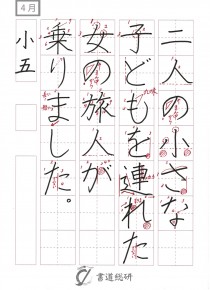 4月
二人の小さな
子どもを連れた
女の旅人が
乗りました。
小五
書道総研